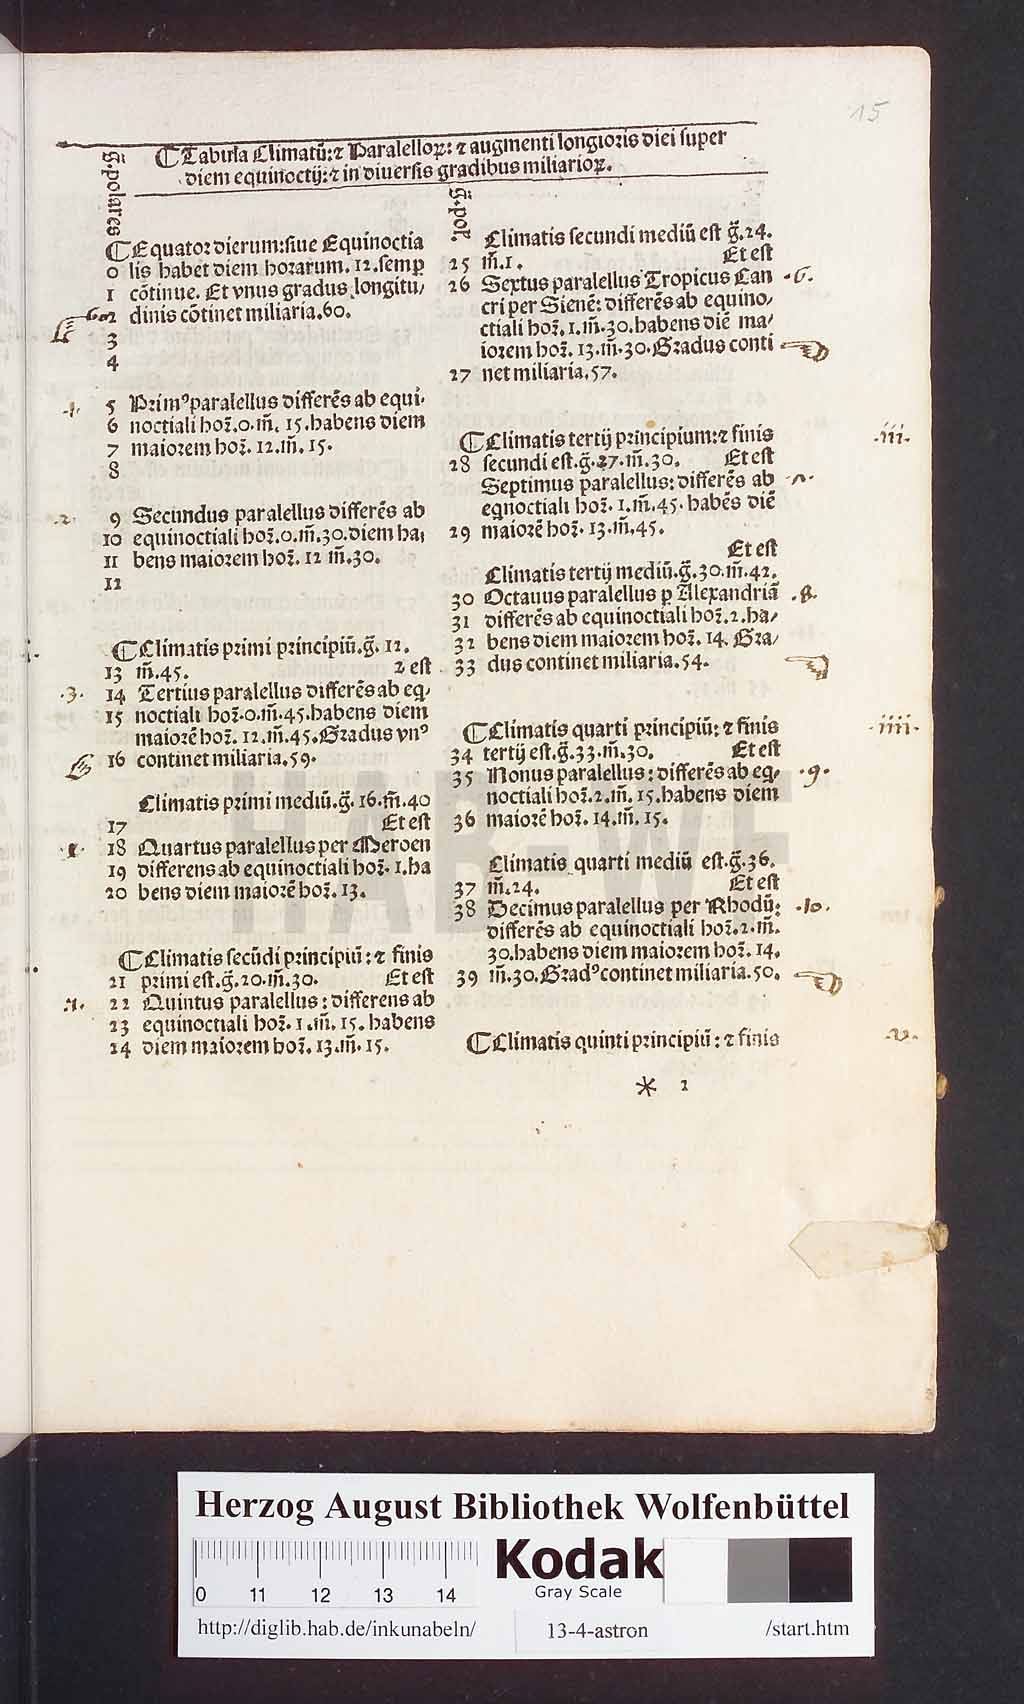 15
Tabula Climatū: ⁊ Paralelloꝝ: ⁊ augmenti longioris diei super
diem equinoctij: ⁊ in diuersis gradibus miliarioꝝ.
G̃. polares
Equator dierum: siue Equinoctia
0 lis habet diem horarum. 12. semꝑ
1 cōtinue. Et vnus gradus longitu/
2 dinis cōtinet miliaria. 60.
3
4
.1. 5 Primꝰ paralellus differēs ab equi/
6 noctiali hor̄. 0. m̄. 15. habens diem
7 maiorem hor̄. 12. m̄. 15.
8
.2. 9 Secundus paralellus differēs ab
10 equinoctiali hor̄. 0. m̄. 30. diem ha/
11 bens maiorem hor̄. 12 m̄. 30.
12
Climatis primi principiū. g̃. 12.
13 m̄. 45. ⁊ est
.3. 14 Tertius paralellus differēs ab eq/
15 noctiali hor̄. 0. m̄. 45. habens diem
maiorē hor̄. 12. m̄. 45. Gradus vnꝰ
16 continet miliaria. 59.
Climatis primi mediū. g̃. 16. m̄. 40
17 Et est
18 Quartus paralellus per Meroen
19 differens ab equinoctiali hor̄. 1. ha
20 bens diem maiorē hor̄. 13.
Climatis secūdi principiū: ⁊ finis
21 primi est. g̃. 20. m̄. 30. Et est
22 Quintus paralellus: differens ab
23 equinoctiali hor̄. 1. m̄. 15. habens
24 diem maiorem hor̄. 13. m̄. 15.
G̃. pol.
Climatis secundi mediū est g̃. 24.
25 m̄. 1. Et est
26 Sextus paralellus Tropicus Can .6.
cri per Sienē: differēs ab equino/
ctiali hor̄. 1. m̄. 30. habens diē ma/
iorem hor̄. 13. m̄. 30. Gradus conti
27 net miliaria. 57.
Climatis tertij principium: ⁊ finis .iii.
28 secundi est. g̃. 27. m̄. 30. Et est
Septimus paralellus: differēs ab
eqnoctiali hor̄. 1. m̄. 45. habēs diē
29 maiorē hor̄. 13. m̄. 45.
Et est
Climatis tertij mediū. g̃. 30. m̄. 42.
30 Octauus paralellus ꝑ Alexandriā .8.
31 differēs ab equinoctiali hor̄. 2. ha/
32 bens diem maiorem hor̄. 14. Gra/
33 dus continet miliaria. 54.
Climatis quarti principiū: ⁊ finis .iiii.
34 tertij est. g̃. 33. m̄. 30. Et est
35 Nonus paralellus: differēs ab eq/ .9.
noctiali hor̄. 2. m̄. 15. habens diem
36 maiorē hor̄. 14. m̄. 15.
Climatis quarti mediū est. g̃. 36.
37 m̄. 24. Et est
38 Decimus paralellus per Rhodū: .10.
differēs ab equinoctiali hor̄. 2. m̄.
30. habens diem maiorem hor̄. 14.
39 m̄. 30. Gradꝰ continet miliaria. 50.
Climatis quinti principiū: ⁊ finis .v.
* 2
HAB-WF
Herzog August Bibliothek Wolfenbüttel
0 11 12 13 14
Kodak
Gray Scale
http://diglib.hab.de/inkunabeln/ 13-4-astron /start.htm